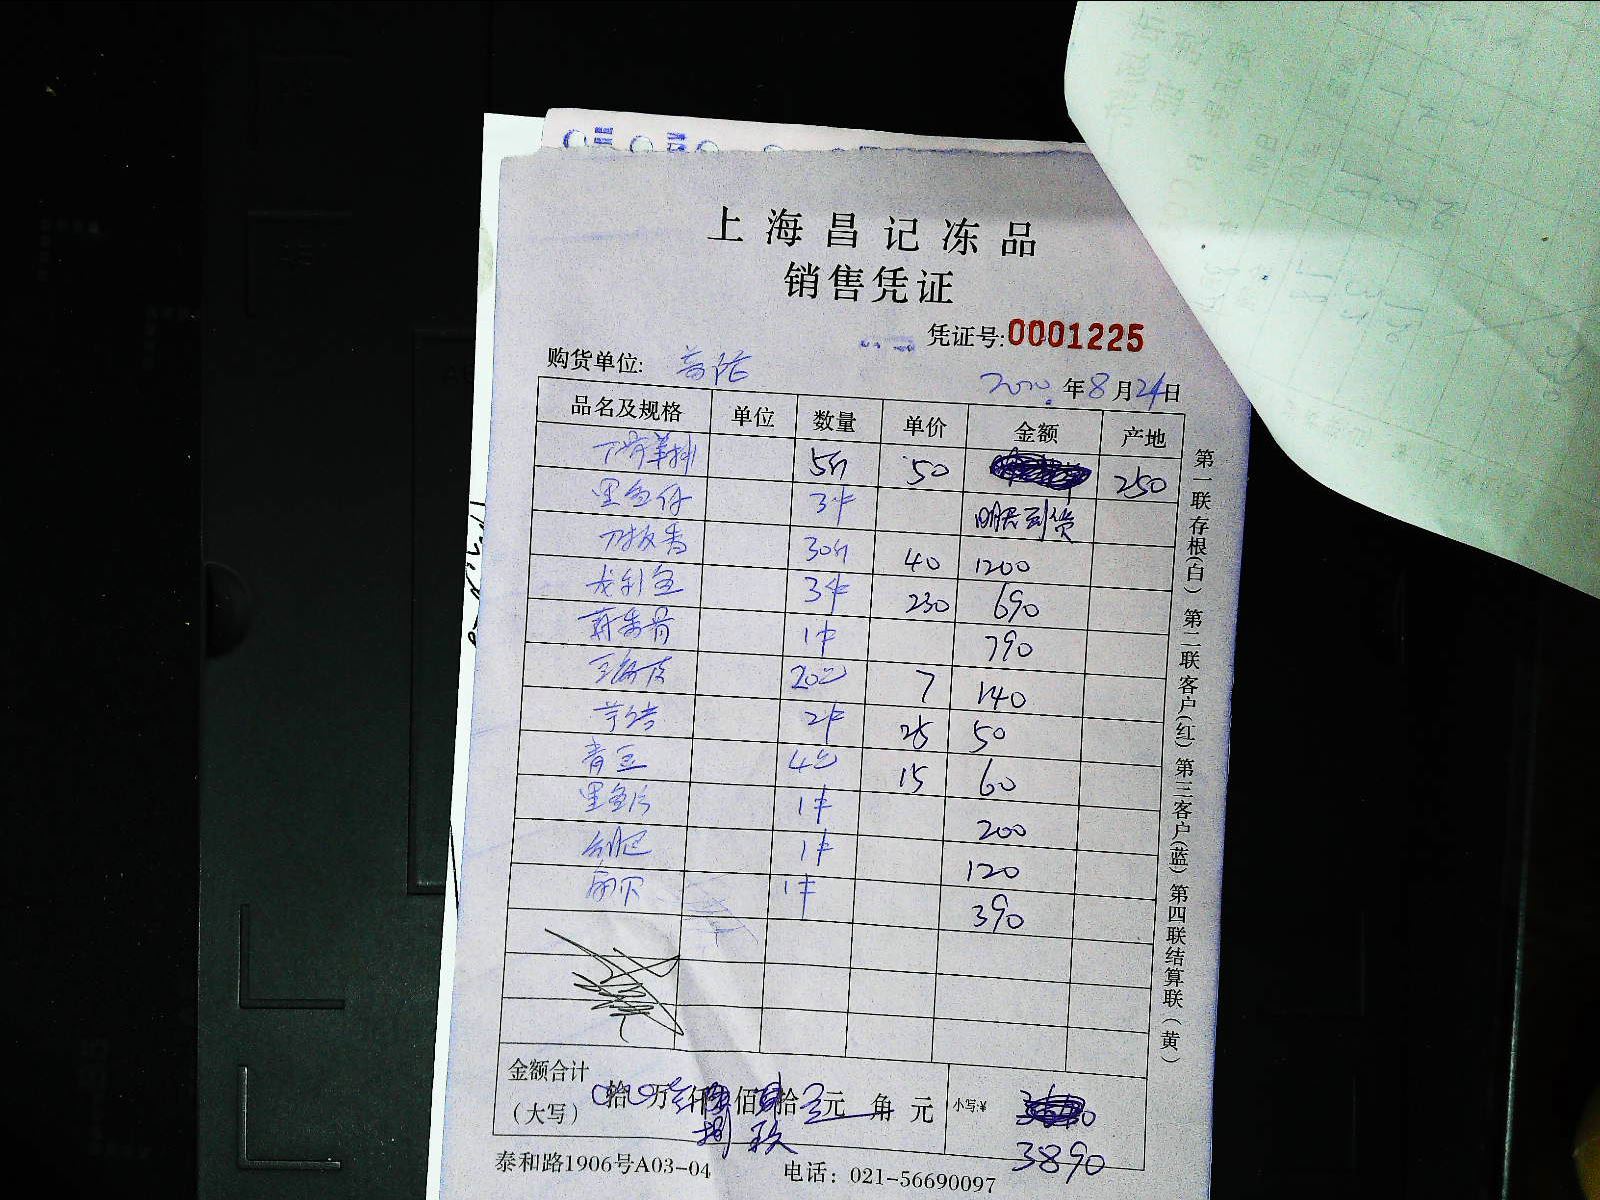 上海昌记冻品
销售凭证
凭证号:0001225
购货单位:
2020年8月24日
品名及规格 单位 数量 单价 金额 产地
丁骨羊排 5份 50 250
黑鱼仔 3件 明天到货
刀板香 30份 40 1200
龙利鱼 3件 230 690
1件 790
20包 7 140
2件 25 50
青豆 4包 15 60
黑鱼片 1件 200
1件 120
1件 390
金额合计
(大写) 拾 万 仟 佰 拾 元 角 元 小写:¥
捌 玖 3890
泰和路1906号A03-04 电话:021-56690097
第一联存根(白) 第二联客户(红) 第三客户(蓝) 第四联结算联(黄)